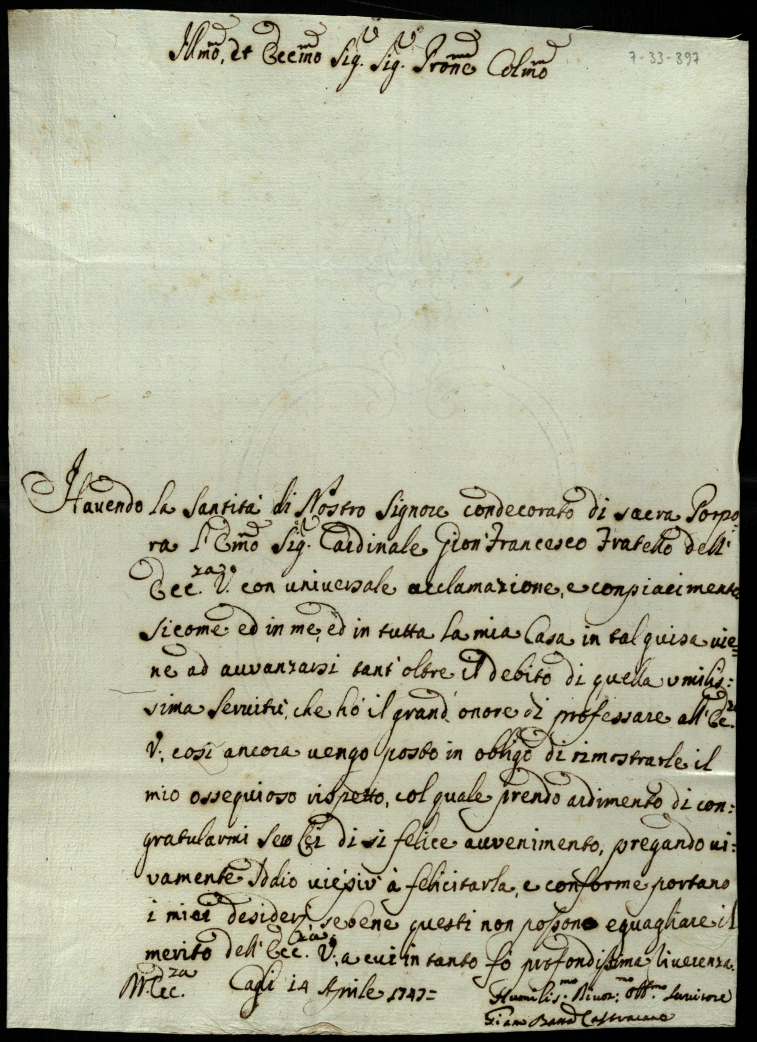 Illmo, et Eccmo Sig. Sig. Prone Colmo
7-33-397
Havendo la Santità di Nostro Signore condecorato di sacra Porpo
ra l'Emo Sig. Cardinale Gion Francesco Fratello dell'
Ecc.za V. con universale acclamazione, e conpiacimento
sicome ed in me, ed in tutta la mia Casa in tal guisa vie=
ne ad avvanzarsi tant'oltre il debito di quella umilis:
sima servitù, che hò il grand'onore di professare all'Ecc.za
V., così ancora vengo posto in obligo di rimostrarle il
mio ossequioso rispetto, col quale prendo ardimento di con:
gratularmi seco Lei di si felice avvenimento, pregando vi:
vamente Iddio viepiù à felicitarla, e conforme portano
i miei desiderj, sebene questi non possono eguagliare il
merito dell'Ecc.za V., a cui in tanto fò profondissima riverenza.
Ecc.za Cagli 14 Aprile 1747=
Humilis.mo Divot.mo Obb.mo Servitore
Giam Batta Castracane